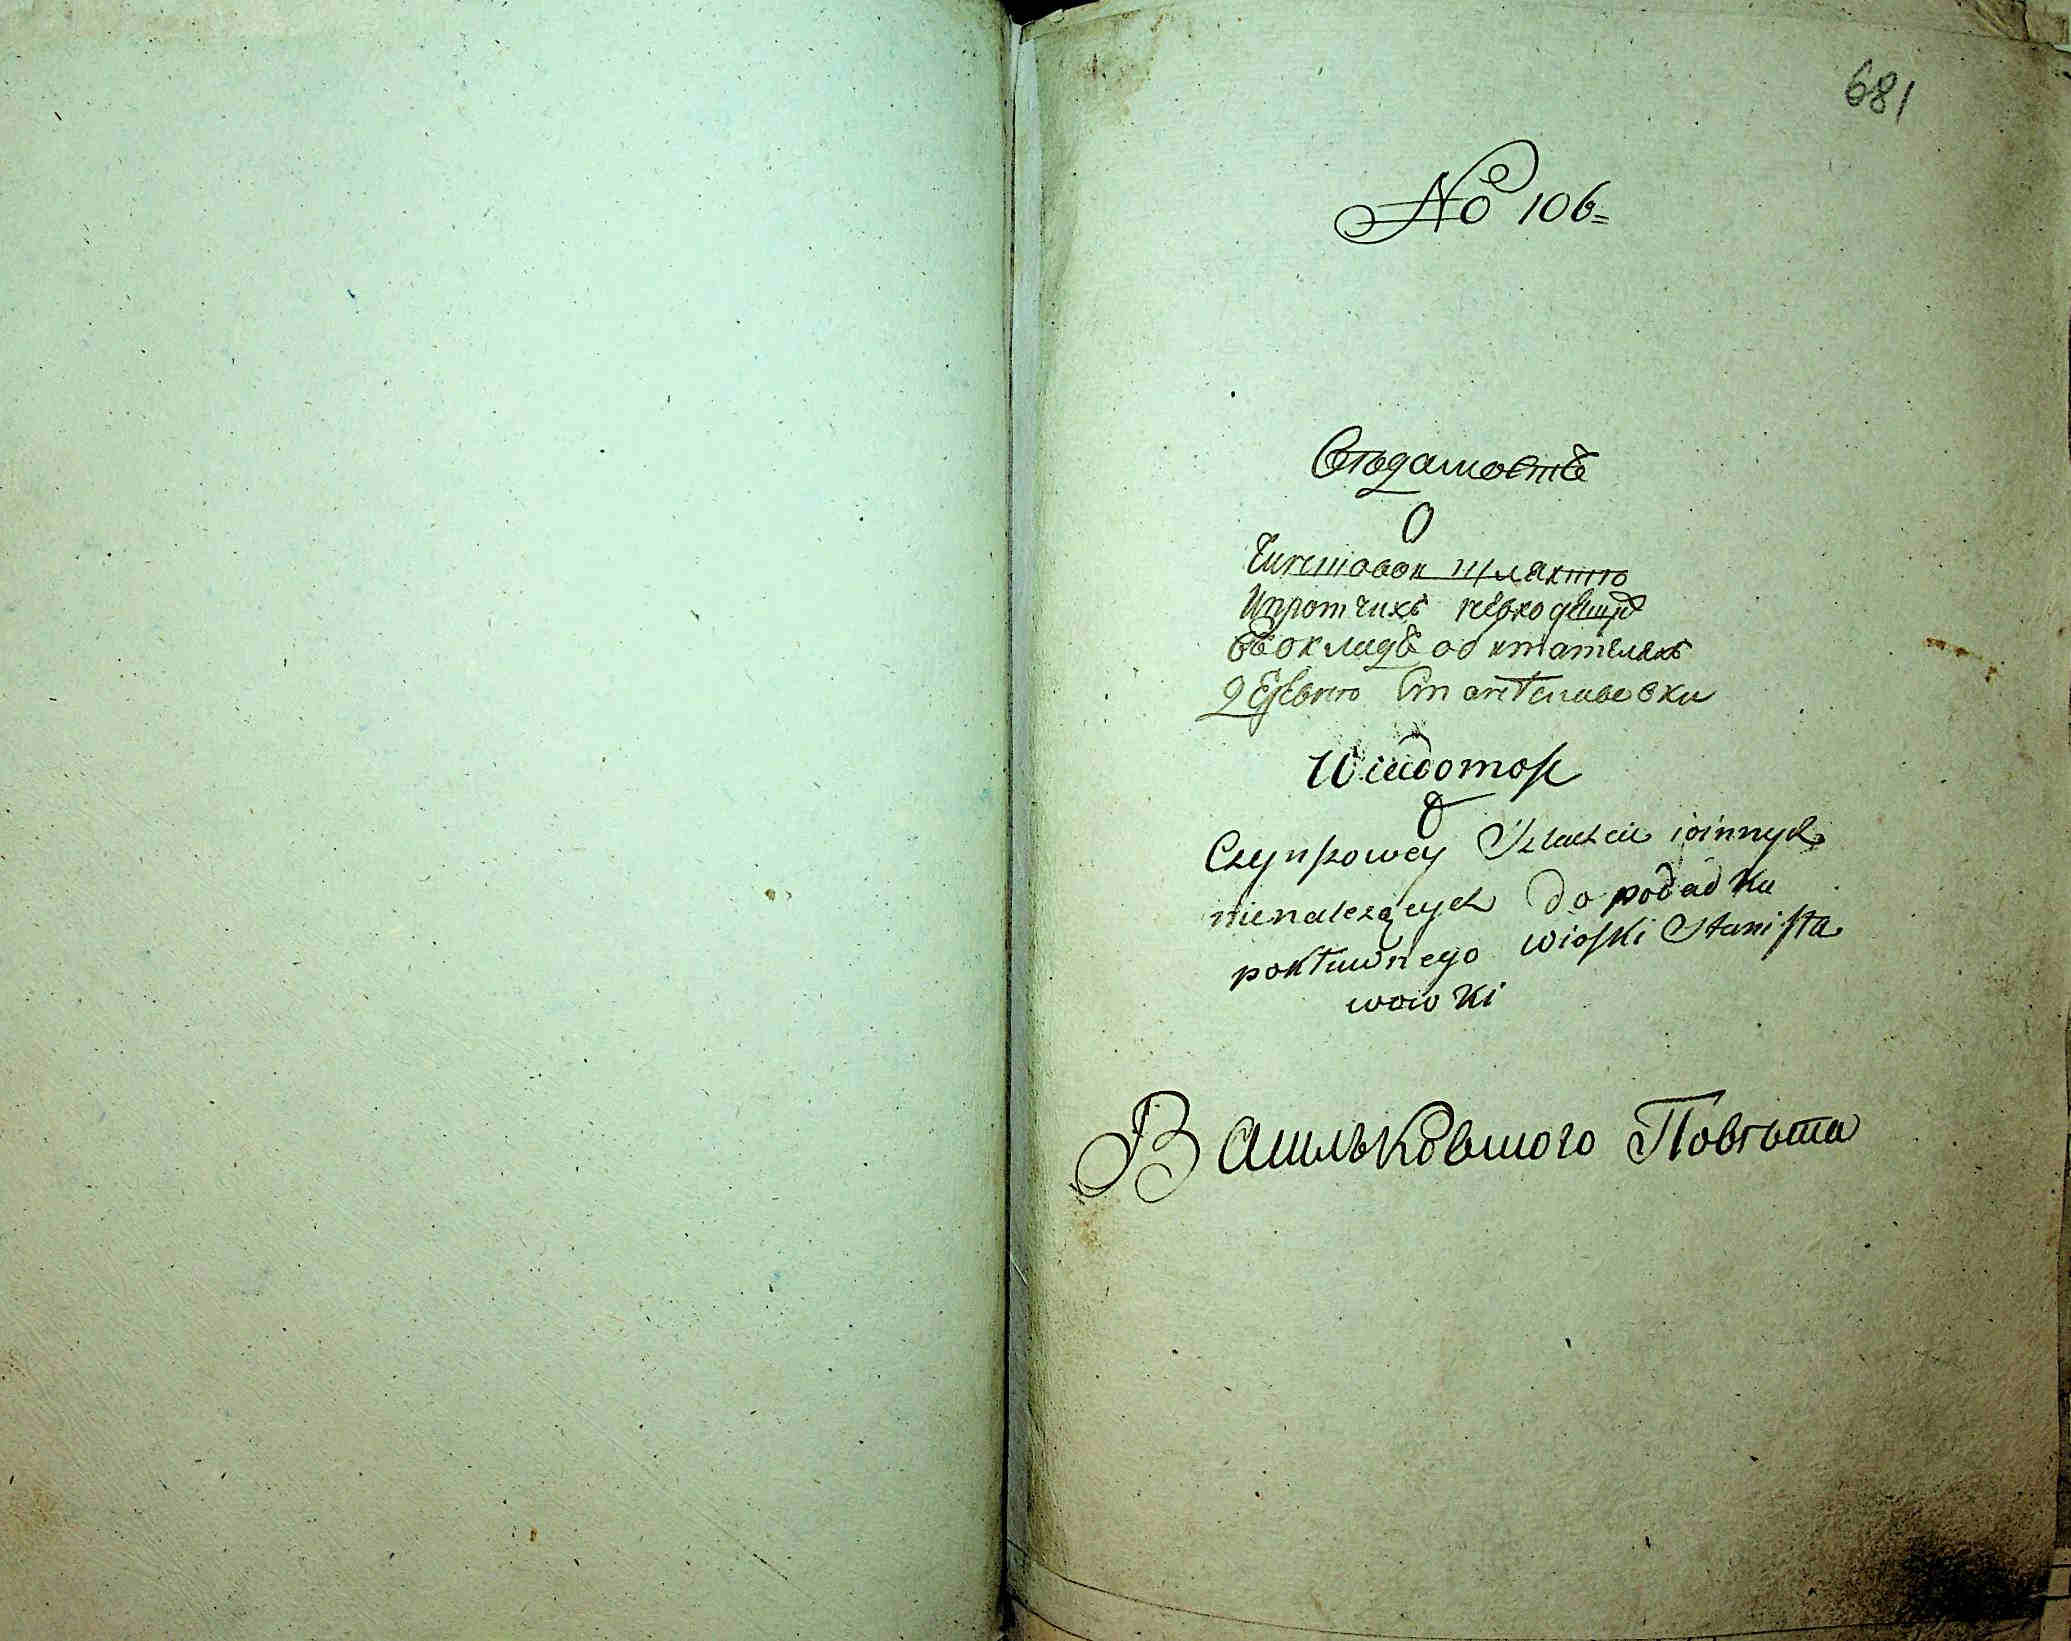 681
No 106=
Вѣдамость
О
Чиншовой шляхты
Ипротчихъ невходящихъ
въокладъ обытателяхъ
деревни Станиславовки
Wiadomosc
O
Czynszowey Szlachcie iinnych
nienalezących do podadku
pokłuwnego wioski Stanisła
wowki
Васильковского Повѣта